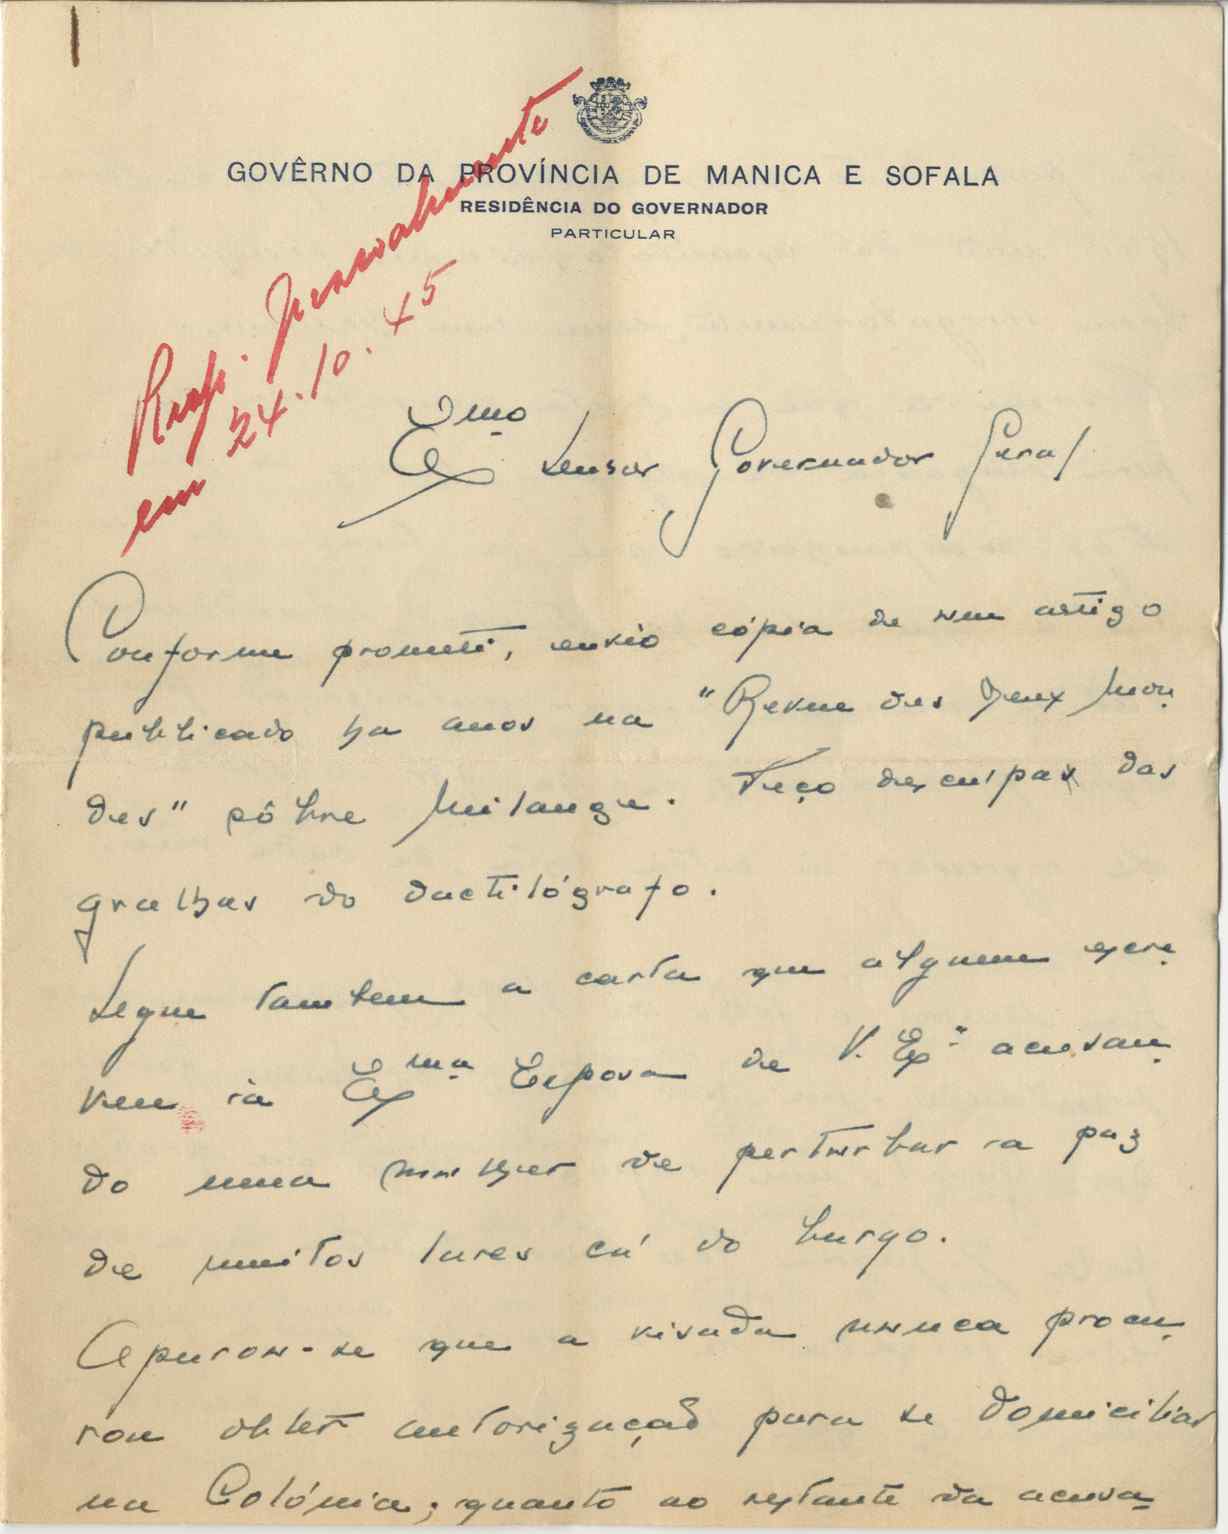 GOVÊRNO DA PROVÍNCIA DE MANICA E SOFALA
RESIDÊNCIA DO GOVERNADOR
PARTICULAR
Resp. pessoalmente
em 24.10.45
Exmo Senhor Governador Geral
Conforme prometi, envio cópia de um artigo
publicado ha anos na "Revue des Deux Mon
des" sôbre Milange. Peço desculpas das
gralhas do dactilógrafo.
Segue tambem a carta que alguem escre
veu á Exma Esposa de V. Exª acusan
do uma mulher de perturbar a paz
de muitos lares cá do burgo.
Apurou-se que a visada nunca procu
rou obter autorização para se domiciliar
na Colónia; quanto ao restante da acusa